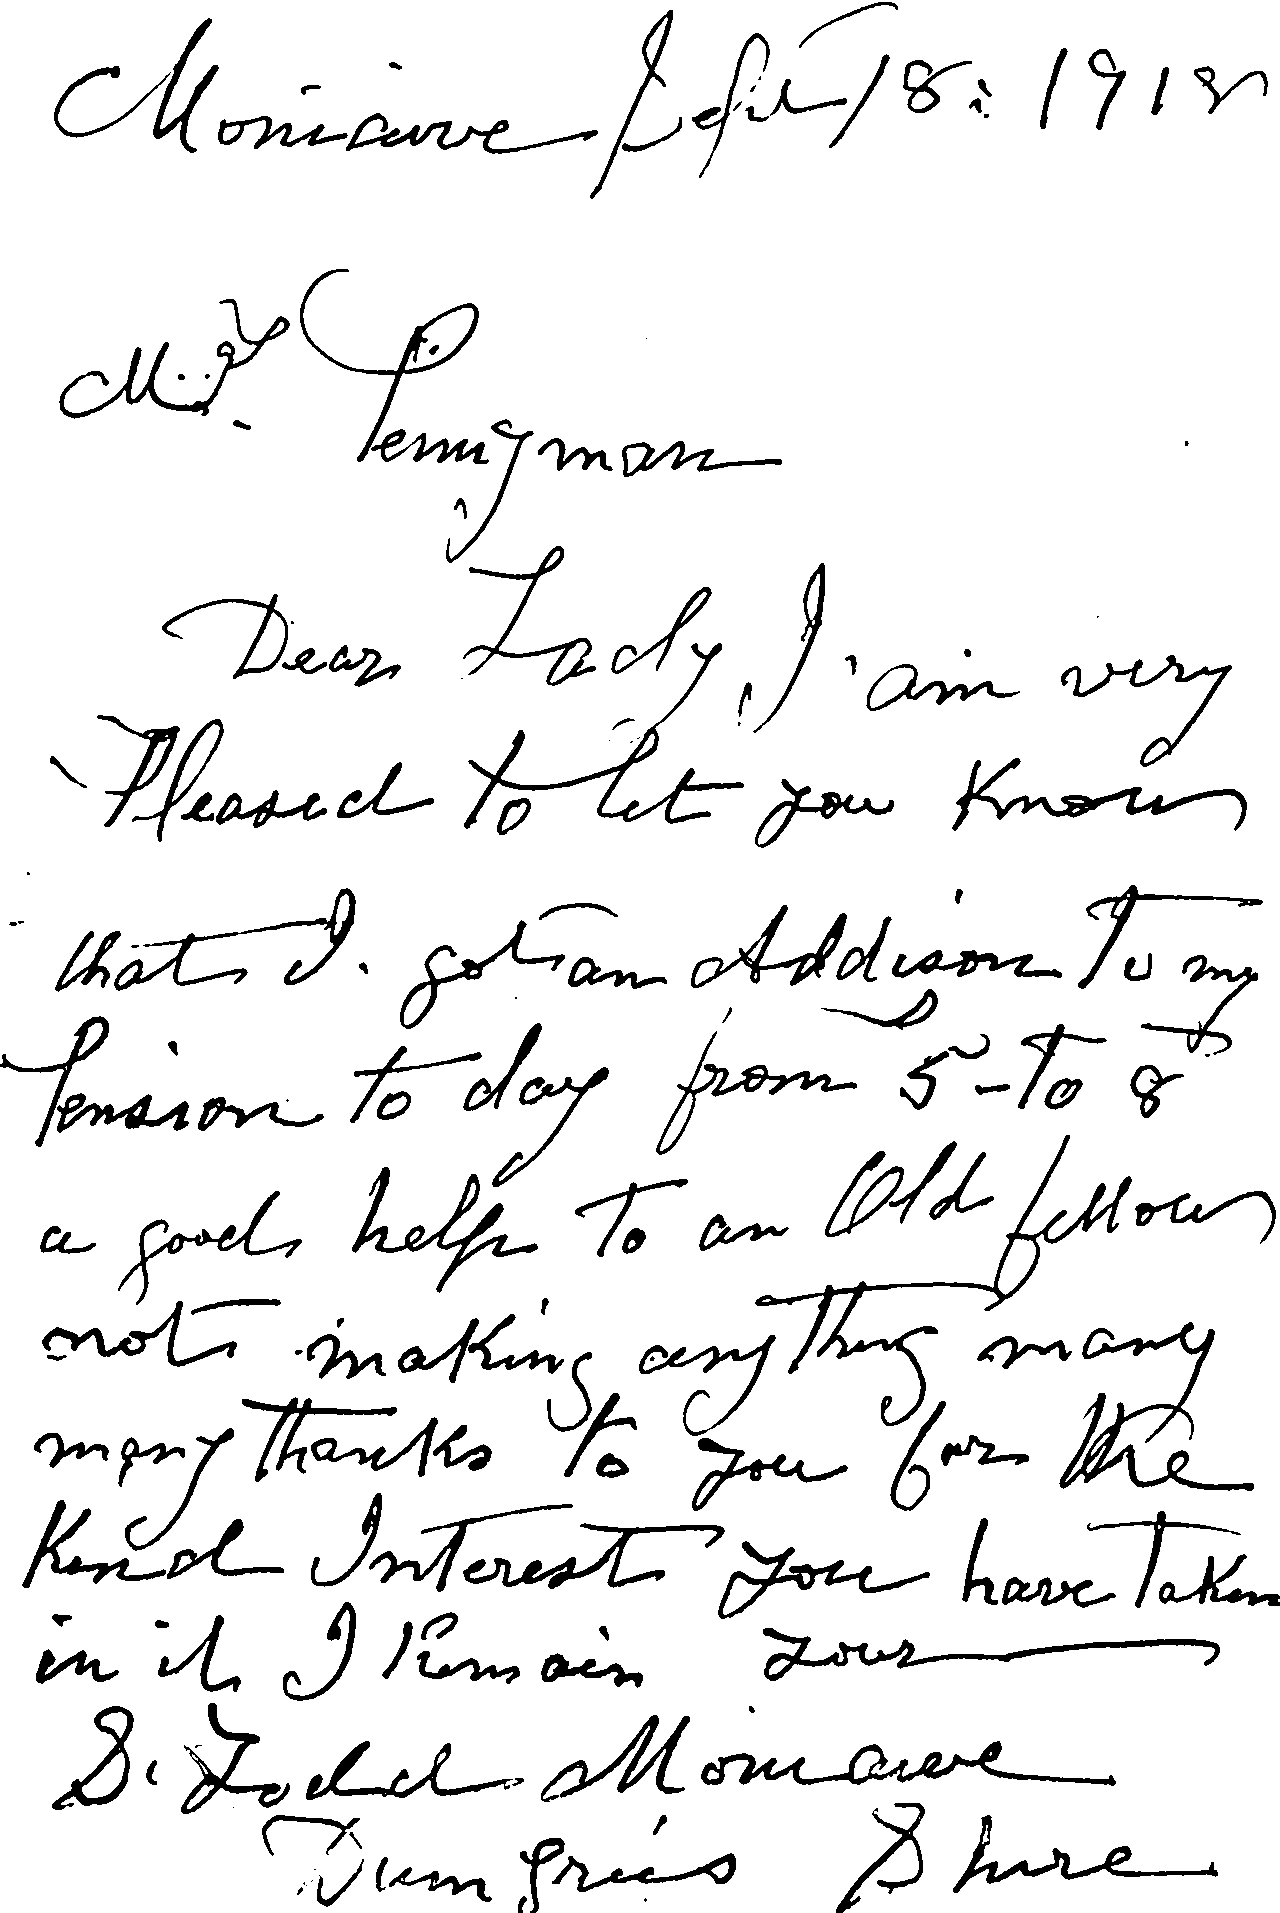 Moniaive Sept 18: 1918
Mrs. Pennyman
Dear Lady, I am very
Pleased to let you Know
that I. got an Addison To my
Pension to day from 5 - To 8
a good help To an Old fellow
not making any Thing many
many Thanks to you for the
Kind Interest you have Taken
in it I Remain your
S. Todd Moniaive
Dumfries Shire